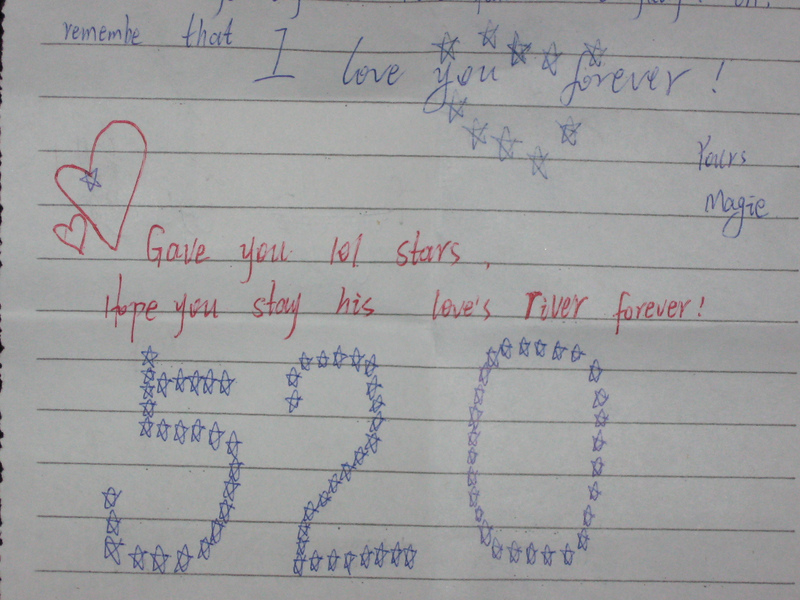 remembe that I love you forever!
Yours
Magie
Gave you 101 stars.
Hope you stay his love's river forever!
520